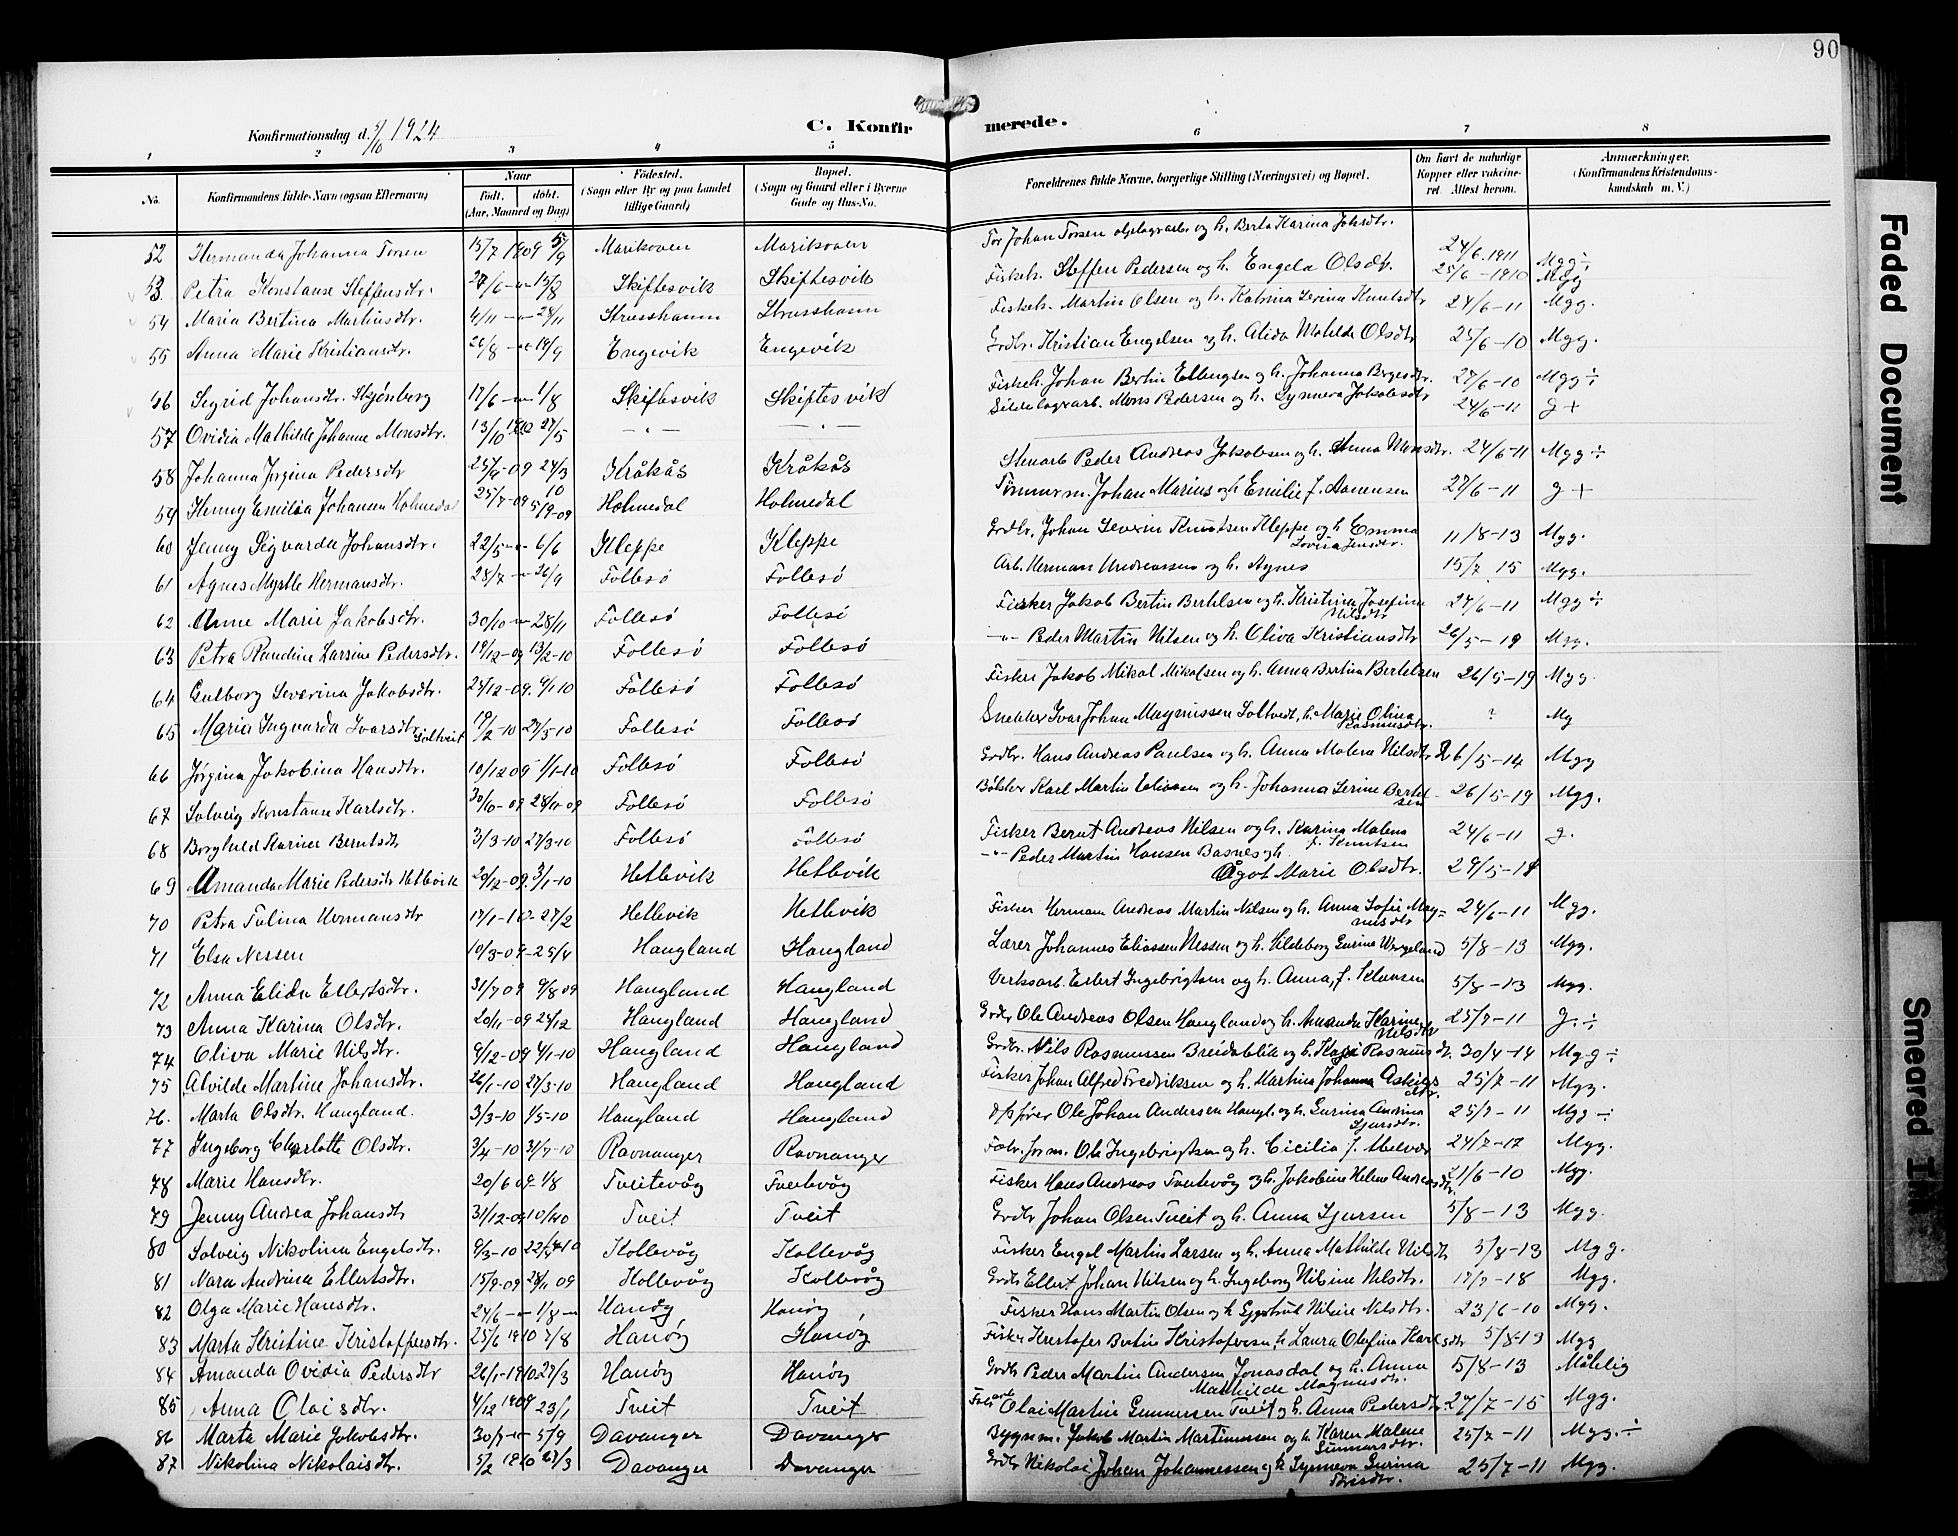 90
Konfirmationsdag d. 5/10 1924
C. Konfirmerede.
1 2 3 4 5 6 7 8
No. Konfirmandens fulde Navn (ogsaa Efternavn) Naar Født. døbt. (Aar, Maaned og Dag) Fødested. (Sogn eller By og paa Landet tillige Gaard) Bopæl. (Sogn og Gaard eller i Byerne Gade og Hus-No. Forældrenes fulde Navne, borgerlige Stilling (Næringsvei) og Bopæl. Om havt de naturlige Kopper eller vaccineret Attest herom. Anmærkninger. (Konfirmandens Kristendomskundskab m. V.)
52 Hermanda Johanna Torsen 15/7 1909 5/9 Marikoven Marikoven Tor Johan Torsen oljelagrarb og h. Berta Karina Johsdtr. 24/6 1911 Mgg ÷
53. Petra Konstanse Steffensdtr. 27/6 -"- 15/8 Skiftesvik Skiftesvik Fiskeh. Steffen Pedersen og h. Engela Olsdtr. 25/6 - 1910 Mgg
54 Maria Bertina Martinsdtr. 4/11 -"- 28/11 Strusshamn Strusshamn Fiskeh. Martin Olsen og h. Katrina Serina Knutsdtr 24/6-11 Mgg.
55 Anna Marie Kristiansdtr. 26/8 -"- 19/9 Engevik Engevik Grdbr. Kristian Engelsen og h. Alida Matilde Olsdtr 25/6-10 Mgg.
56 Sigrid Johansdtr. Skjønberg 17/6 -"- 1/8 Skiftesvik Skiftesvik Fiskeh. Johan Bertin Ellingsen og h. Johanna Børgesdtr. 27/6-10 Mgg ÷
57 Ovidia Mathilde Johanne Monsdtr. 13/10 1910 27/5 -"- -"- Sildelagrarb. Mons Pedersen og h. Synneva Jakobsdtr 24/6-11 g +
58 Johanna Jørgina Pedersdtr 25/9-09 24/3 10 Kråkås Kråkås Stenarb Peder Andreas Jakobsen og h. Anna Monsdtr. 24/6-11 Mgg ÷
59 Henny Emilia Johansen Holmedal 25/7-09 5/9-09 Holmedal Holmedal Tømmerm. Johan Marius og h Emilie f. Aanensen 27/6-11 g +
60 Jenny Sigvarda Johansdtr. 22/5 -"- 6/6 Kleppe Kleppe Grdbr. Johan Severin Knutsen Kleppe og h. Emma Lovisa Jensdtr. 11/8-13 Mgg.
61 Agnes Myrtle Hermansdtr. 28/7 -"- 26/9 Follesø Follesø Arb. Herman Andreassen og h. Agnes 15/7 15 Mgg.
62 Anne Marie Jakobsdtr. 30/10 -"- 28/11 Follesø Follesø Fisker Jakob Bertin Bertelsen og h. Kristina Josefine Nilsdtr 24/6-11 Mgg ÷
63 Petra Randine Larsine Pedersdtr. 19/12-09 13/2-10 Follesø Follesø -"- Peder Martin Nilsen og h. Oliva Kristiansdtr 26/5-19 Mgg.
64 Gulborg Severina Jakobsdtr. 25/12-09. 9/1-10 Follesø Follesø Fisker Jakob Mikal Mikalsen og h. Anna Bertina Bertelsen 26/5-19 Mgg
65 Marie Ingvarda Ivarsdtr Soltveit 19/2-10 27/5-10 Follesø Follesø Snekker Ivar Johan Magnussen Soltvedt, h. Marie Olina Rasmusdtr. ? Mg
66 Jørgina Jakobina Hansdtr. 10/12 09 9/1-10 Follesø Follesø Grdbr. Hans Andreas Paulsen og h. Anna Malena Nilsdtr 26/5-14 Mgg
67 Solveig Konstanse Karlsdtr. 30/10-09 28/11-09 Follesø Follesø Karl Martin Eliassen og h. Johanna Serine Bertelsen 26/5-19 Mgg.
68 Borghild Karine Berntsdtr 3/3-10 27/3-10 Follesø Follesø Fisker Bernt Andreas Nilsen og h. Karina Malena f. Knutsen 24/6-11 g.
69 Amanda Marie Pedersdtr Hetlevik 20/12-09. 3/1-10 Hetlevik Hetlevik -"- Peder Martin Hansen Basnes og h. Ågot Marie Olsdtr. 29/5-19
70 Petra Tulina Hermansdtr 17/1-10 27/2 Hetlevik Hetlevik Fisker Herman Andreas Martin Nilsen og h. Anna Sofie Magnusdtr 24/6-11 Mgg.
71 Elsa Nessen 10/3-09 25/4 Haugland Haugland Lærer Johannes Eliassen Nessen og h. Hildeborg Gurine Wergeland 5/8-13 Mgg.
72 Anna Elida Ellertsdtr. 31/7 09 9/8 09 Haugland Haugland Verksarb. Ellert Ingebrigtsen og h. Anna, f. 5/8-13 Mgg.
73 Anna Karina Olsdtr. 20/11-09 27/12 Haugland Haugland Grdbr Ole Andreas Olsen Haugland og h. Amanda Karine Nilsdtr 25/7-11 g. ÷
74 Oliva Marie Nilsdtr. 9/12-09 4/1-10 Haugland Haugland Grdbr. Nils Rasmussen Breidablik og h. Kari Rasmusdtr. 30/4-14 Mgg ÷
75 Alvilde Martine Johansdtr. 26/1-10 27/3-10 Haugland Haugland Fisker Johan Alfred Fredriksen og h. Martina Johanna Askilgsdtr. 25/7-11 Mgg.
76. Marta Olsdtr. Haugland. 3/3-10 1/5-10 Haugland Haugland Ole Johan Andersen Haugl. og h. Gurina Andrina Sjursdtr. 25/7-11 Mgg ÷
77 Ingeborg Charlotte Olsdtr. 3/4-10 31/7-10 Ravnanger Ravnanger Fabr. form. Ole Ingebrigtsen og h. Cicilia f. Melver 24/7-17 Mgg.
78 Marie Hansdtr. 20/6 09 1/8 Tveitevåg Tveitevåg Fisker Hans Andreas Tveitevåg og h. Jakobine Helene Andreasdtr. 21/6-10 Mgg.
79 Jenny Andrea Johansdtr 31/12-09 10/4 10 Tveit Tveit Grdbr Johan Olsen Tveit og h. Anna Sjursen 5/8-13 Mgg.
80 Solveig Nikolina Engelsdtr. 9/3-10 22/5-10 Kollevåg Kollevåg Fisker Engel Martin Larsen og h. Anna Mathilde Nilsdtr 5/8-13 Mgg.
81 Nara Andrina Ellertsdtr. 15/9-09 28/11 09 Kollevåg Kollevåg Grdbr Ellert Johan Nilsen og h. Ingeborg Nilsine Nilsdtr. 17/7-18 Mgg.
82 Olga Marie Hansdtr. 24/6 -"- 1/8 -"- Hanøy Hanøy Fisker Hans Martin Olsen og h Nilsine Nilsdtr. 23/6-10 Mgg.
83 Marta Kristine Kristoffersdtr. 25/6 1910 7/8 Hanøy Hanøy Fisker Kristofer Bertin Kristofersen, h. Laura Olefina Karlsdtr 5/8-13 Mgg
84 Amanda Ovidia Pedersdtr 26/1-1910 27/3 Hanøy Hanøy Grdbr Peder Martin Andersen Jonasdal og h. Anna Mathilde Magnusdtr. 5/8-13 Måtelig
85 Anna Olaisdtr. 4/12 1909 23/1 Tveit Tveit Fabrarb Olai Martin Gunnersen Tveit og h. Anna Pedersdtr. 27/7-15 Mgg.
86 Marta Marie Jakobsdtr. 30/7 -"- 5/9 Davanger Davanger Bygnm. Jakob Martin Martinussen og h. Karen Malene Gunnarsdtr. 25/7-11 Mgg. ÷
87 Nikolina Nikolaisdtr. 5/2 1910 28/3 Davanger Davanger Grdbr Nikolai Johan Johannessen og h Synneva Gurina 25/7-11 Mgg.
Faded Document
Smeared Ink